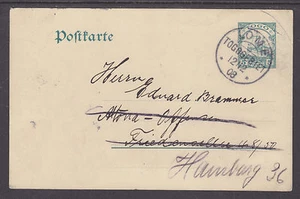 Postkarte
TOGO
LOME
TOGOGEBIET
12/12
08
Herrn
Eduard Brammer
Altona-Ottensen
Hamburg 36